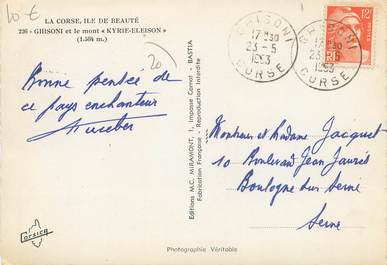 10 €
LA CORSE, ILE DE BEAUTÉ
226 - GHISONI et le mont « KYRIE-ELEISON »
(1.584 m.)
20
Bonne pensée de
ce pays enchanteur
Editions M.C. MIRAMONT, 1, Impasse Carnot - BASTIA
Fabrication Française - Reproduction Interdite
GHISONI
17 H 30
23-5
1953
CORSE
GHISONI
17 H 30
23-5
1953
CORSE
12F
RF
Monsieur et Madame Jacquet
10 Boulevard Jean Jaurès
Boulogne sur Seine
Seine
Corsica
Photographie Véritable